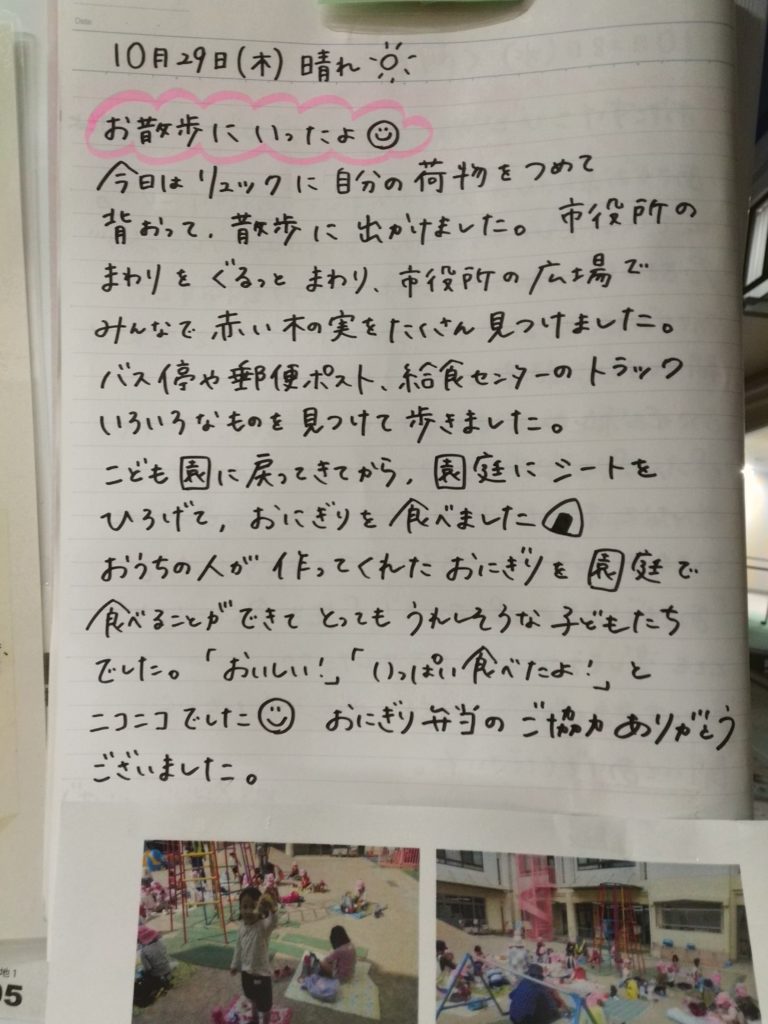 Date
10月29日(木) 晴れ
お散歩にいったよ
今日はリュックに自分の荷物をつめて
背おって、散歩に出かけました。市役所の
まわりをぐるっとまわり、市役所の広場で
みんなで赤い木の実をたくさん見つけました。
バス停や郵便ポスト、給食センターのトラック
いろいろなものを見つけて歩きました。
こども園に戻ってきてから、園庭にシートを
ひろげて、おにぎりを食べました
おうちの人が作ってくれたおにぎりを園庭で
食べることができてとってもうれしそうな子どもたち
でした。「おいしい!」「いっぱい食べたよ!」と
ニコニコでした おにぎり弁当のご協力ありがとう
ございました。
地1
95